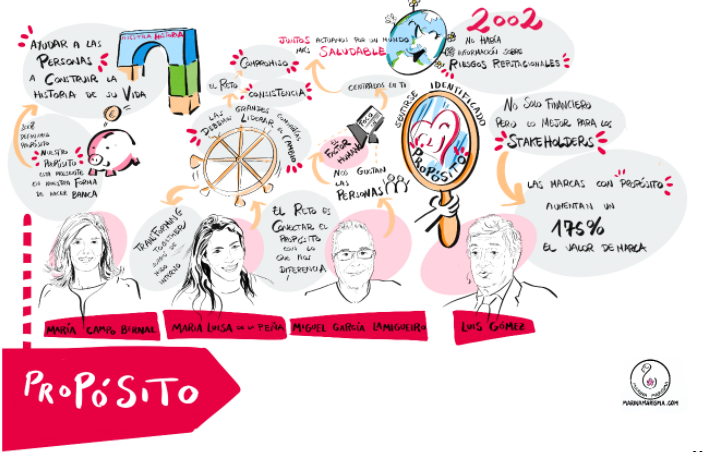 NUESTRA HISTORIA
AYUDAR A LAS
PERSONAS
A CONSTRUIR LA
HISTORIA DE SU VIDA
DEFINIMOS
PROPÓSITO
NUESTRO
PROPÓSITO
ESTÁ PRESENTE
EN NUESTRA FORMA
DE HACER BANCA
COMPROMISO
EL RETO
CONSISTENCIA
LAS GRANDES COMPAÑÍAS
DEBERÍAN LIDERAR EL CAMBIO
TRANSFORMING
TOGETHER
INTERNO
JUNTOS ACTUAMOS POR UN MUNDO
MÁS SALUDABLE
CENTRADOS EN TI
FOCO
EL
FACTOR
HUMANO
NOS GUSTAN
LAS
PERSONAS
EL RETO ES
CONECTAR EL
PROPÓSITO
CON LO
QUE NOS
DIFERENCIA
2002
NO HABÍA
INFORMACIÓN SOBRE
RIESGOS REPUTACIONALES
SENTIRSE IDENTIFICADO
PROPÓSITO
NO SOLO FINANCIERO
PERO LO MEJOR PARA LOS
STAKEHOLDERS
LAS MARCAS CON PROPÓSITO
AUMENTAN UN
175%
EL VALOR DE MARCA
MARÍA CAMPO BERNAL
MARÍA LUISA DE LA PEÑA
MIGUEL GARCÍA LAMIGUEIRO
LUIS GÓMEZ
PROPÓSITO
MARINA MARISMA
MARINAMARISMA.COM